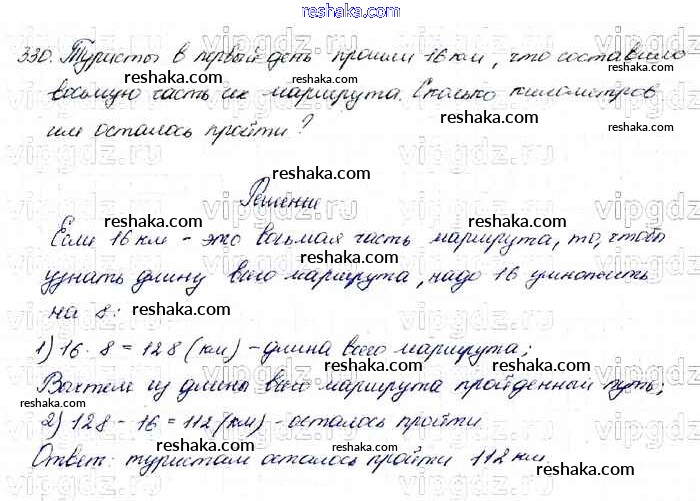 reshaka.com
330. Туристы в первый день прошли 16 км, что составило
reshaka.com reshaka.com
восьмую часть их маршрута. Сколько километров
reshaka.com reshaka.com
им осталось пройти?
vipgdz.ru vipgdz.ru vipgdz.ru
reshaka.com
Решение
reshaka.com reshaka.com
Если 16 км - это восьмая часть маршрута, то, чтобы
reshaka.com
узнать длину всего маршрута, надо 16 умножить
reshaka.com
на 8:
reshaka.com
1) 16 · 8 = 128 (км) - длина всего маршрута;
reshaka.com reshaka.com
Вычтем из длины всего маршрута пройденный путь;
reshaka.com
2) 128 - 16 = 112 (км) - осталось пройти.
reshaka.com reshaka.com
Ответ: туристам осталось пройти 112 км.
reshaka.com